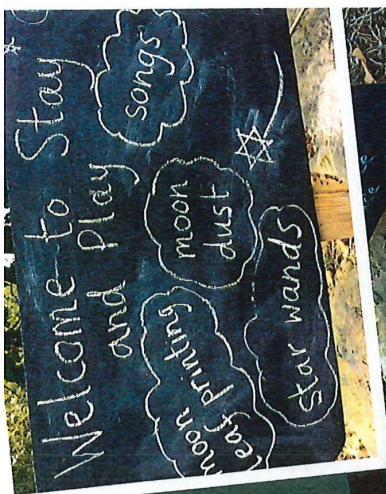 Welcome to Stay
and Play
songs
moon
dust
moon printing
leaf printing
star wands